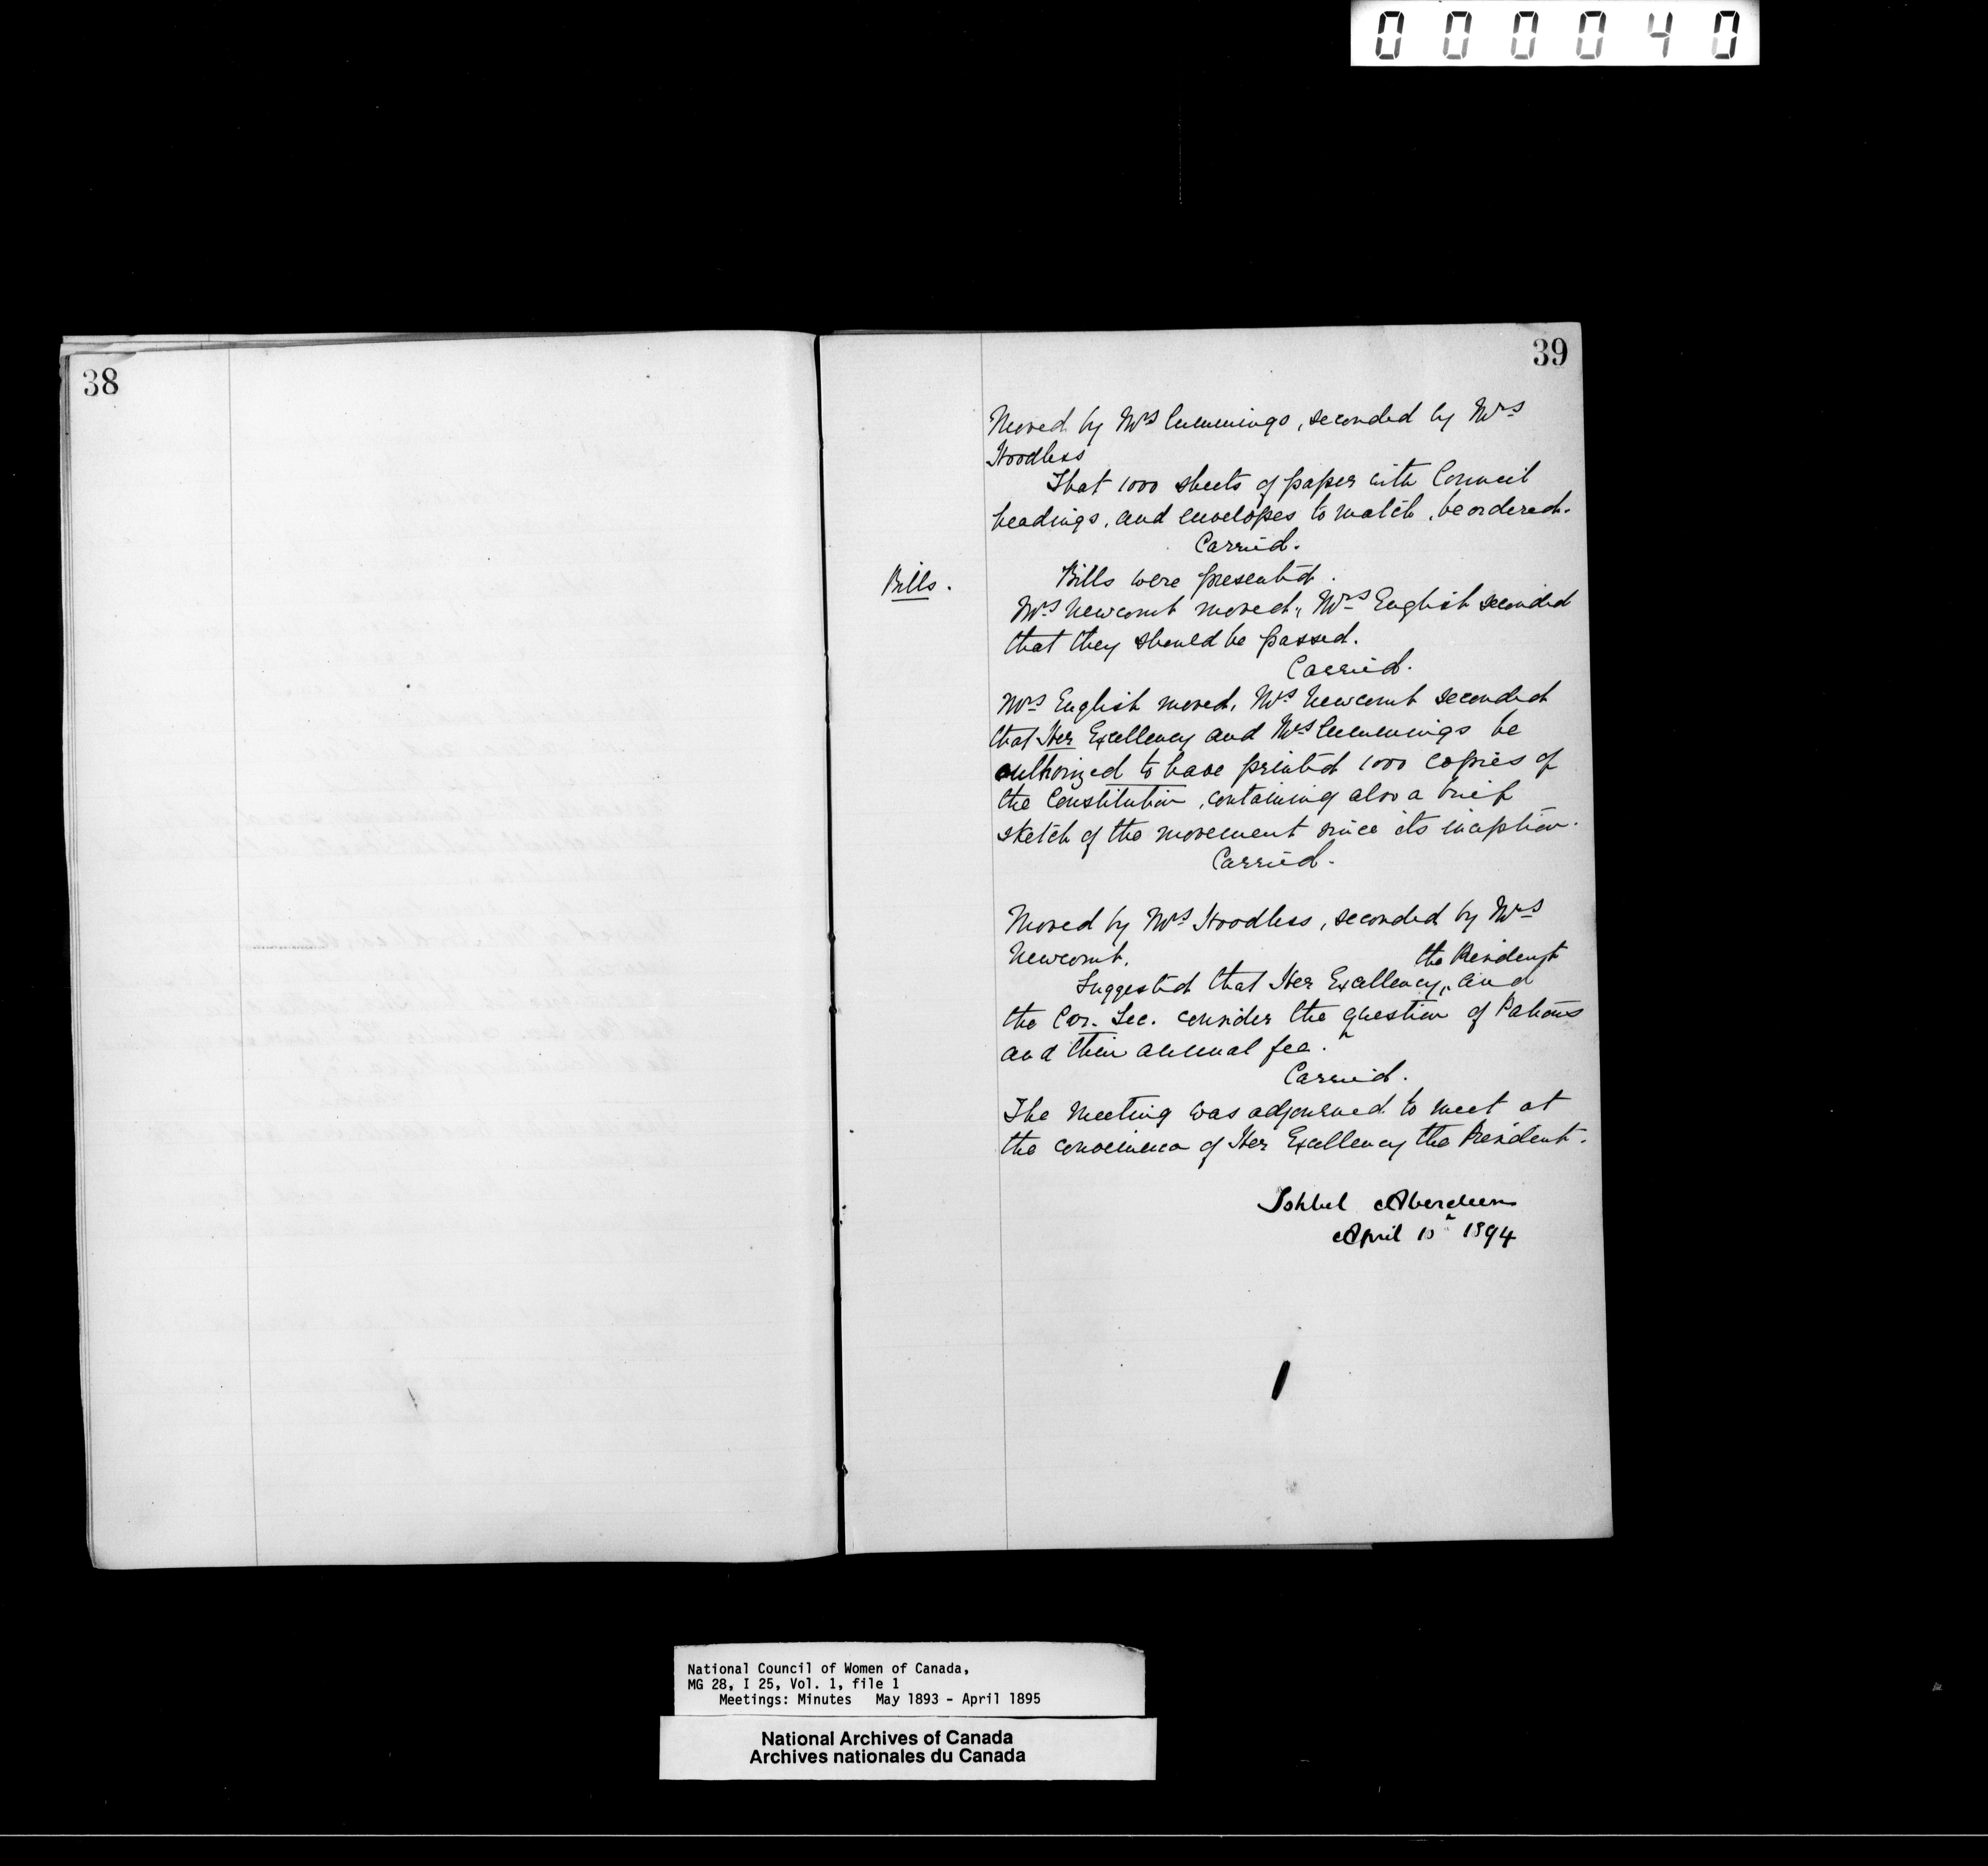 000040
38
39
Moved by Mrs Cummings, seconded by Mrs
Hoodless
That 1000 sheets of paper with Council
headings, and envelopes to match, be ordered.
Carried.
Bills.
Bills were presented.
Mrs Newcomb moved, Mrs English seconded
that they should be passed.
Carried.
Mrs English moved, Mrs Newcomb seconded
that Her Excellency and Mrs Cummings be
authorized to have printed 1000 copies of
the Constitution, containing also a brief
sketch of the movement since its inception.
Carried.
Moved by Mrs Hoodless, seconded by Mrs
Newcomb.
the President
Suggested that Her Excellency, and
the Cor. Sec. consider the question of Patrons
and their annual fee.
Carried.
The Meeting was adjourned to meet at
the convenience of Her Excellency the President.
Ishbel Aberdeen
April 1894
National Council of Women of Canada,
MG 28, I 25, Vol. 1, file 1
Meetings: Minutes May 1893 - April 1895
National Archives of Canada
Archives nationales du Canada